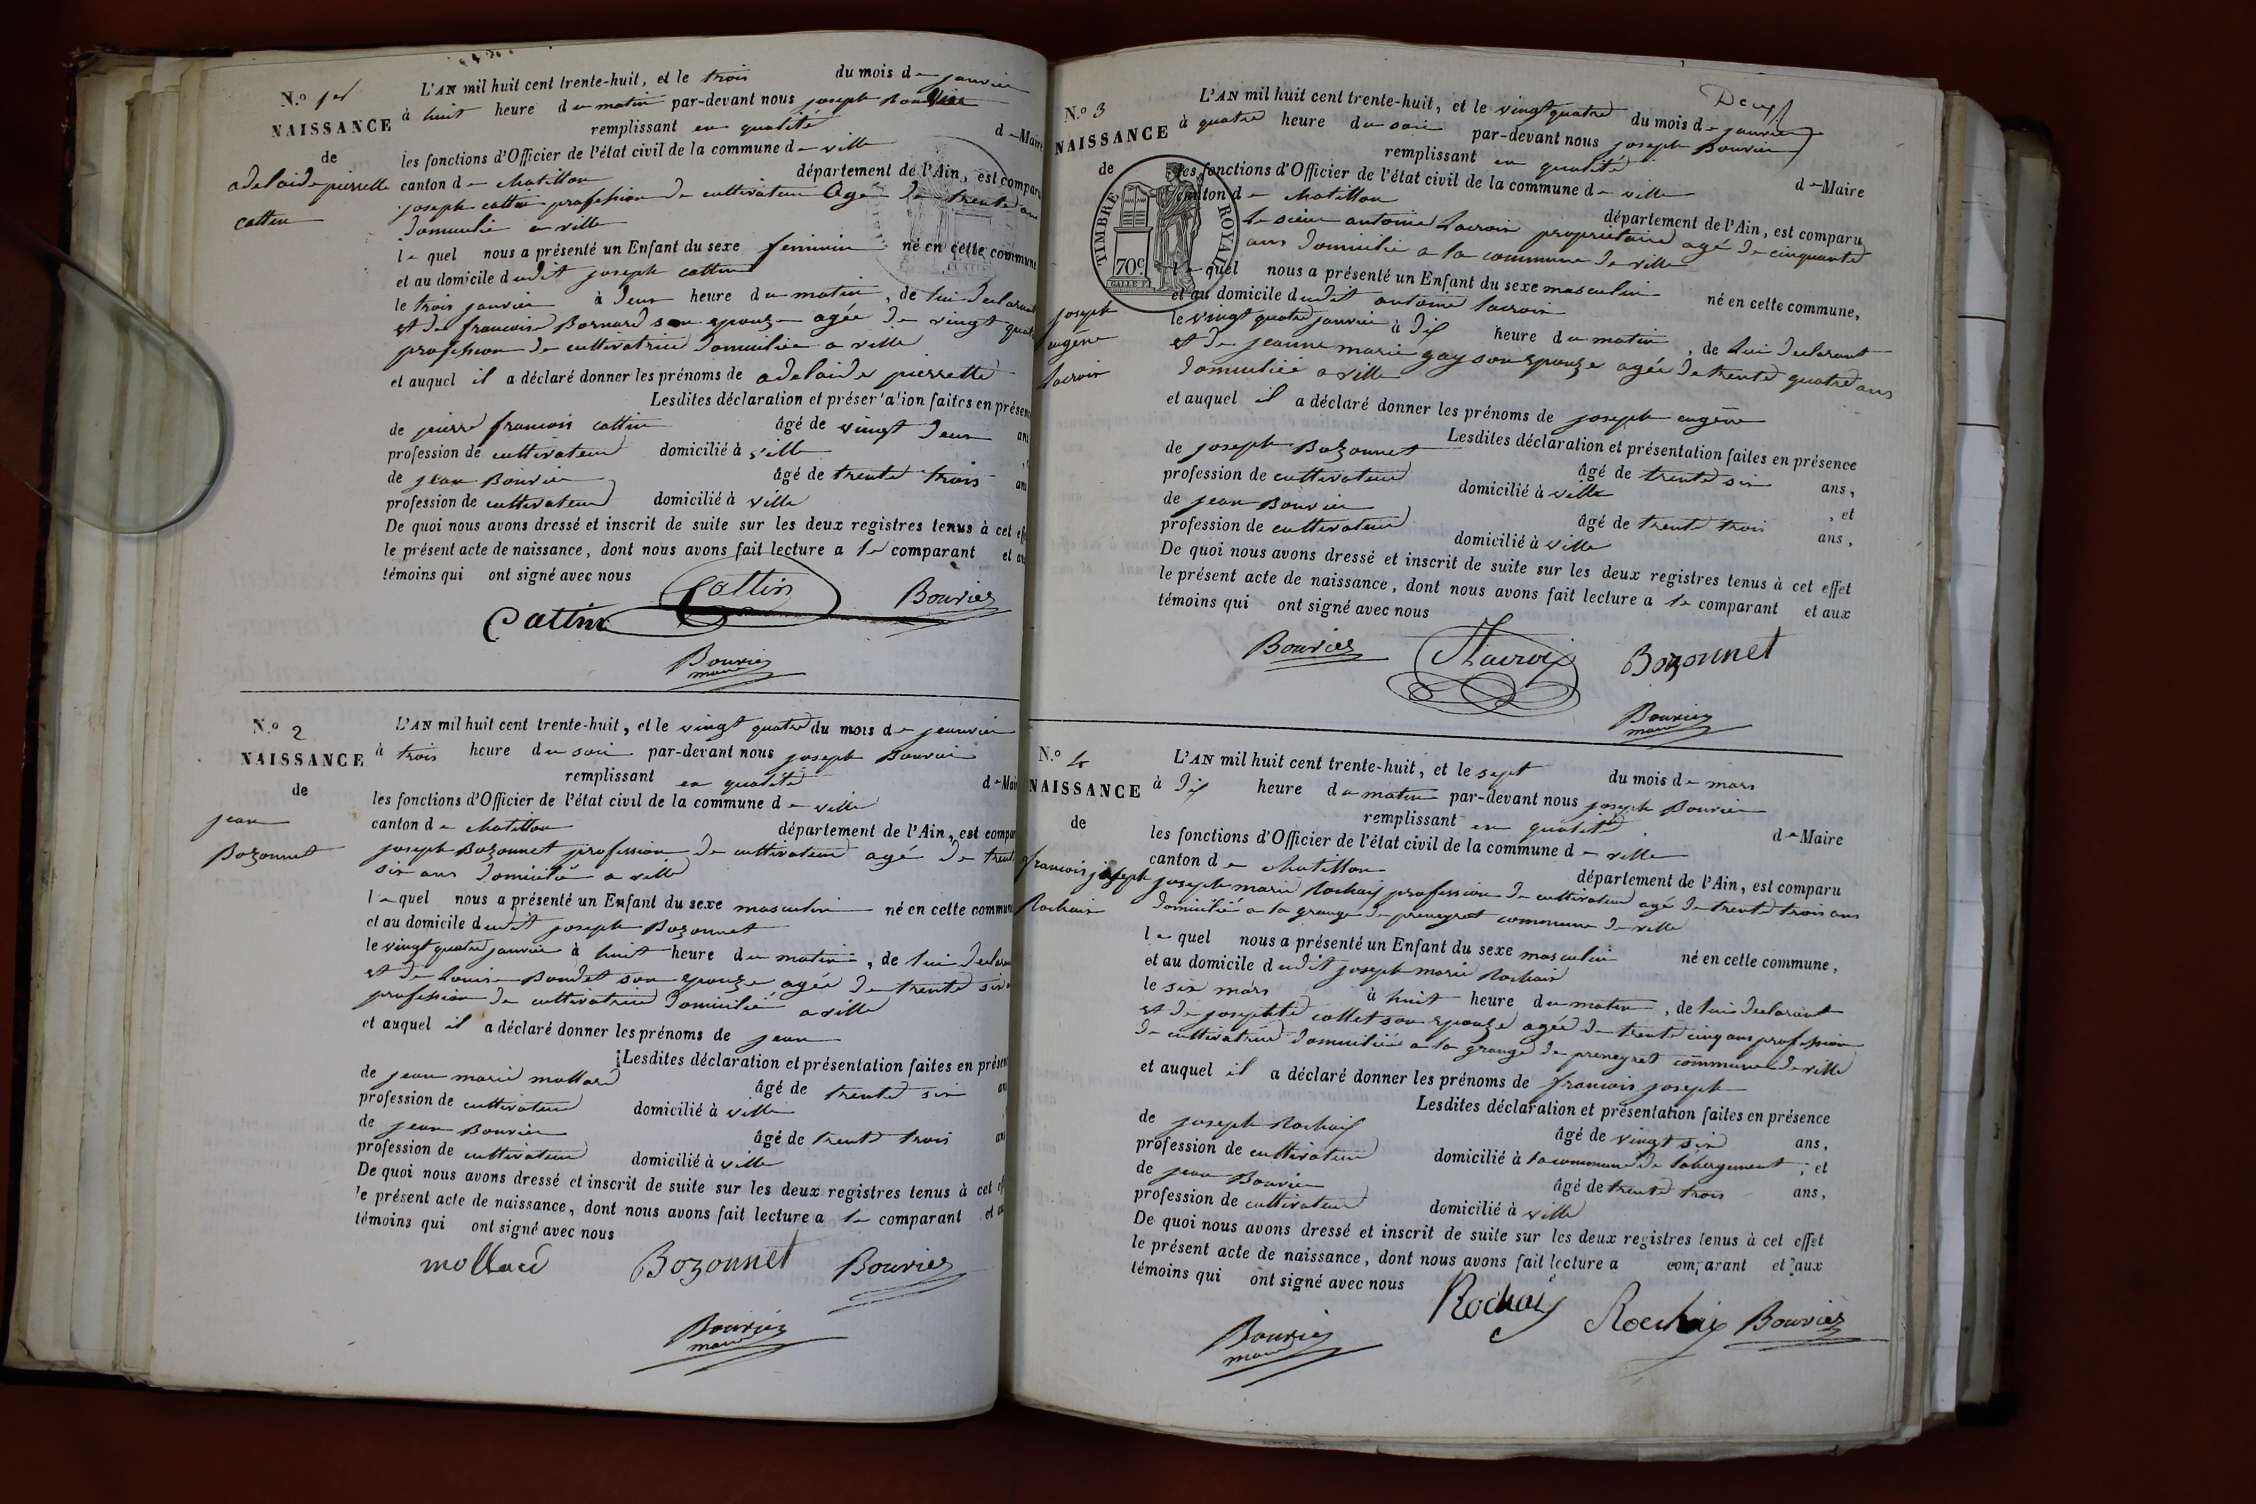 N.º 1er
NAISSANCE
de
adelaide pierrette
cattin
L'AN mil huit cent trente-huit, et le trois du mois de janvier
à huit heure du matin par-devant nous joseph Bouvier
remplissant en qualité de Maire
les fonctions d'Officier de l'état civil de la commune de ville
canton de chatillon département de l'Ain, est comparu
joseph cattin profession de cultivateur agé de trente ans
domicilié a ville
le quel nous a présenté un Enfant du sexe feminin né en cette commune
et au domicile dudit joseph cattin
le trois janvier à deux heure du matin, de lui declarant
et de francoise Bornard son epouze agée de vingt quatre
profession de cultivatrice domiciliée a ville
et auquel il a déclaré donner les prénoms de adelaide pierrette
Lesdites déclaration et présentation faites en présen
de pierre francois cattin âgé de vingt deux ans
profession de cultivateur domicilié à ville
de jean Bouvier âgé de trente trois ans
profession de cultivateur domicilié à ville
De quoi nous avons dressé et inscrit de suite sur les deux registres tenus à cet eff
le présent acte de naissance, dont nous avons fait lecture a le comparant et au
témoins qui ont signé avec nous
Cattin Cattin Bouvier
Bouvier
maire
N.º 2
NAISSANCE
de
jean
Bozonnet
L'AN mil huit cent trente-huit, et le vingt quatre du mois de jeanvier
à trois heure du soir par-devant nous joseph Bouvier
remplissant en qualité de Mair
les fonctions d'Officier de l'état civil de la commune de ville
canton de chatillon département de l'Ain, est compar
joseph Bozonnet profession de cultivateur agé de trente
six ans domicilié a ville
le quel nous a présenté un Enfant du sexe masculin né en cette commune
et au domicile dudit joseph Bozonnet
le vingt quatre janvier à huit heure du matin, de lui declarant
et de Louise Bondet son epouze agée de trente six
profession de cultivatrice domiciliée a ville
et auquel il a déclaré donner les prénoms de jean
Lesdites déclaration et présentation faites en présen
de jean marie mollard âgé de trente six an
profession de cultivateur domicilié à ville
de jean Bouvier âgé de trente trois an
profession de cultivateur domicilié à ville
De quoi nous avons dressé et inscrit de suite sur les deux registres tenus à cet eff
le présent acte de naissance, dont nous avons fait lecture a le comparant et au
témoins qui ont signé avec nous
mollard Bozonnet Bouvier
Bouvier
maire
Deux
N.º 3
NAISSANCE
de
joseph
eugéne
Lacroix
TIMBRE ROYAL
70c
L'AN mil huit cent trente-huit, et le vingt quatre du mois de janvier
à quatre heure du soir par-devant nous joseph Bouvier
remplissant en qualité de Maire
les fonctions d'Officier de l'état civil de la commune de ville
canton de chatillon département de l'Ain, est comparu
Le sieur antoine Lacroix proprietaire agé de cinquante
ans domicilié a la commune de ville
le quel nous a présenté un Enfant du sexe masculin né en cette commune,
et au domicile dudit antoine Lacroix
le vingt quatre janvier à dix heure du matin, de lui declarant
et de jeanne marie gay son epouze agée de trente quatre ans
domiciliée a ville
et auquel il a déclaré donner les prénoms de joseph eugéne
Lesdites déclaration et présentation faites en présence
de joseph Bozonnet âgé de trente six ans,
profession de cultivateur domicilié à ville , et
de jean Bouvier âgé de trente trois ans,
profession de cultivateur domicilié à ville
De quoi nous avons dressé et inscrit de suite sur les deux registres tenus à cet effet
le présent acte de naissance, dont nous avons fait lecture a le comparant et aux
témoins qui ont signé avec nous
Bouvier Lacroix Bozonnet
Bouvier
maire
N.º 4
NAISSANCE
de
francois joseph
Rochaix
L'AN mil huit cent trente-huit, et le sept du mois de mars
à dix heure du matin par-devant nous joseph Bouvier
remplissant en qualité de Maire
les fonctions d'Officier de l'état civil de la commune de ville
canton de chatillon département de l'Ain, est comparu
joseph marie Rochaix profession de cultivateur agé de trente trois ans
domicilié a la grange de preneyret commune de ville
le quel nous a présenté un Enfant du sexe masculin né en cette commune,
et au domicile dudit joseph marie Rochaix
le six mars à huit heure du matin, de lui declarant
et de josephte collet son epouze agée de trente cinq ans profession
de cultivatrice domiciliée a la grange de preneyret commune de ville
et auquel il a déclaré donner les prénoms de francois joseph
Lesdites déclaration et présentation faites en présence
de joseph Rochaix âgé de vingt six ans,
profession de cultivateur domicilié à la commune de labergement, et
de jean Bouvier âgé de trente trois ans,
profession de cultivateur domicilié à ville
De quoi nous avons dressé et inscrit de suite sur les deux registres tenus à cet effet
le présent acte de naissance, dont nous avons fait lecture a comparant et aux
témoins qui ont signé avec nous
Rochaix Rochaix Bouvier
Bouvier
maire